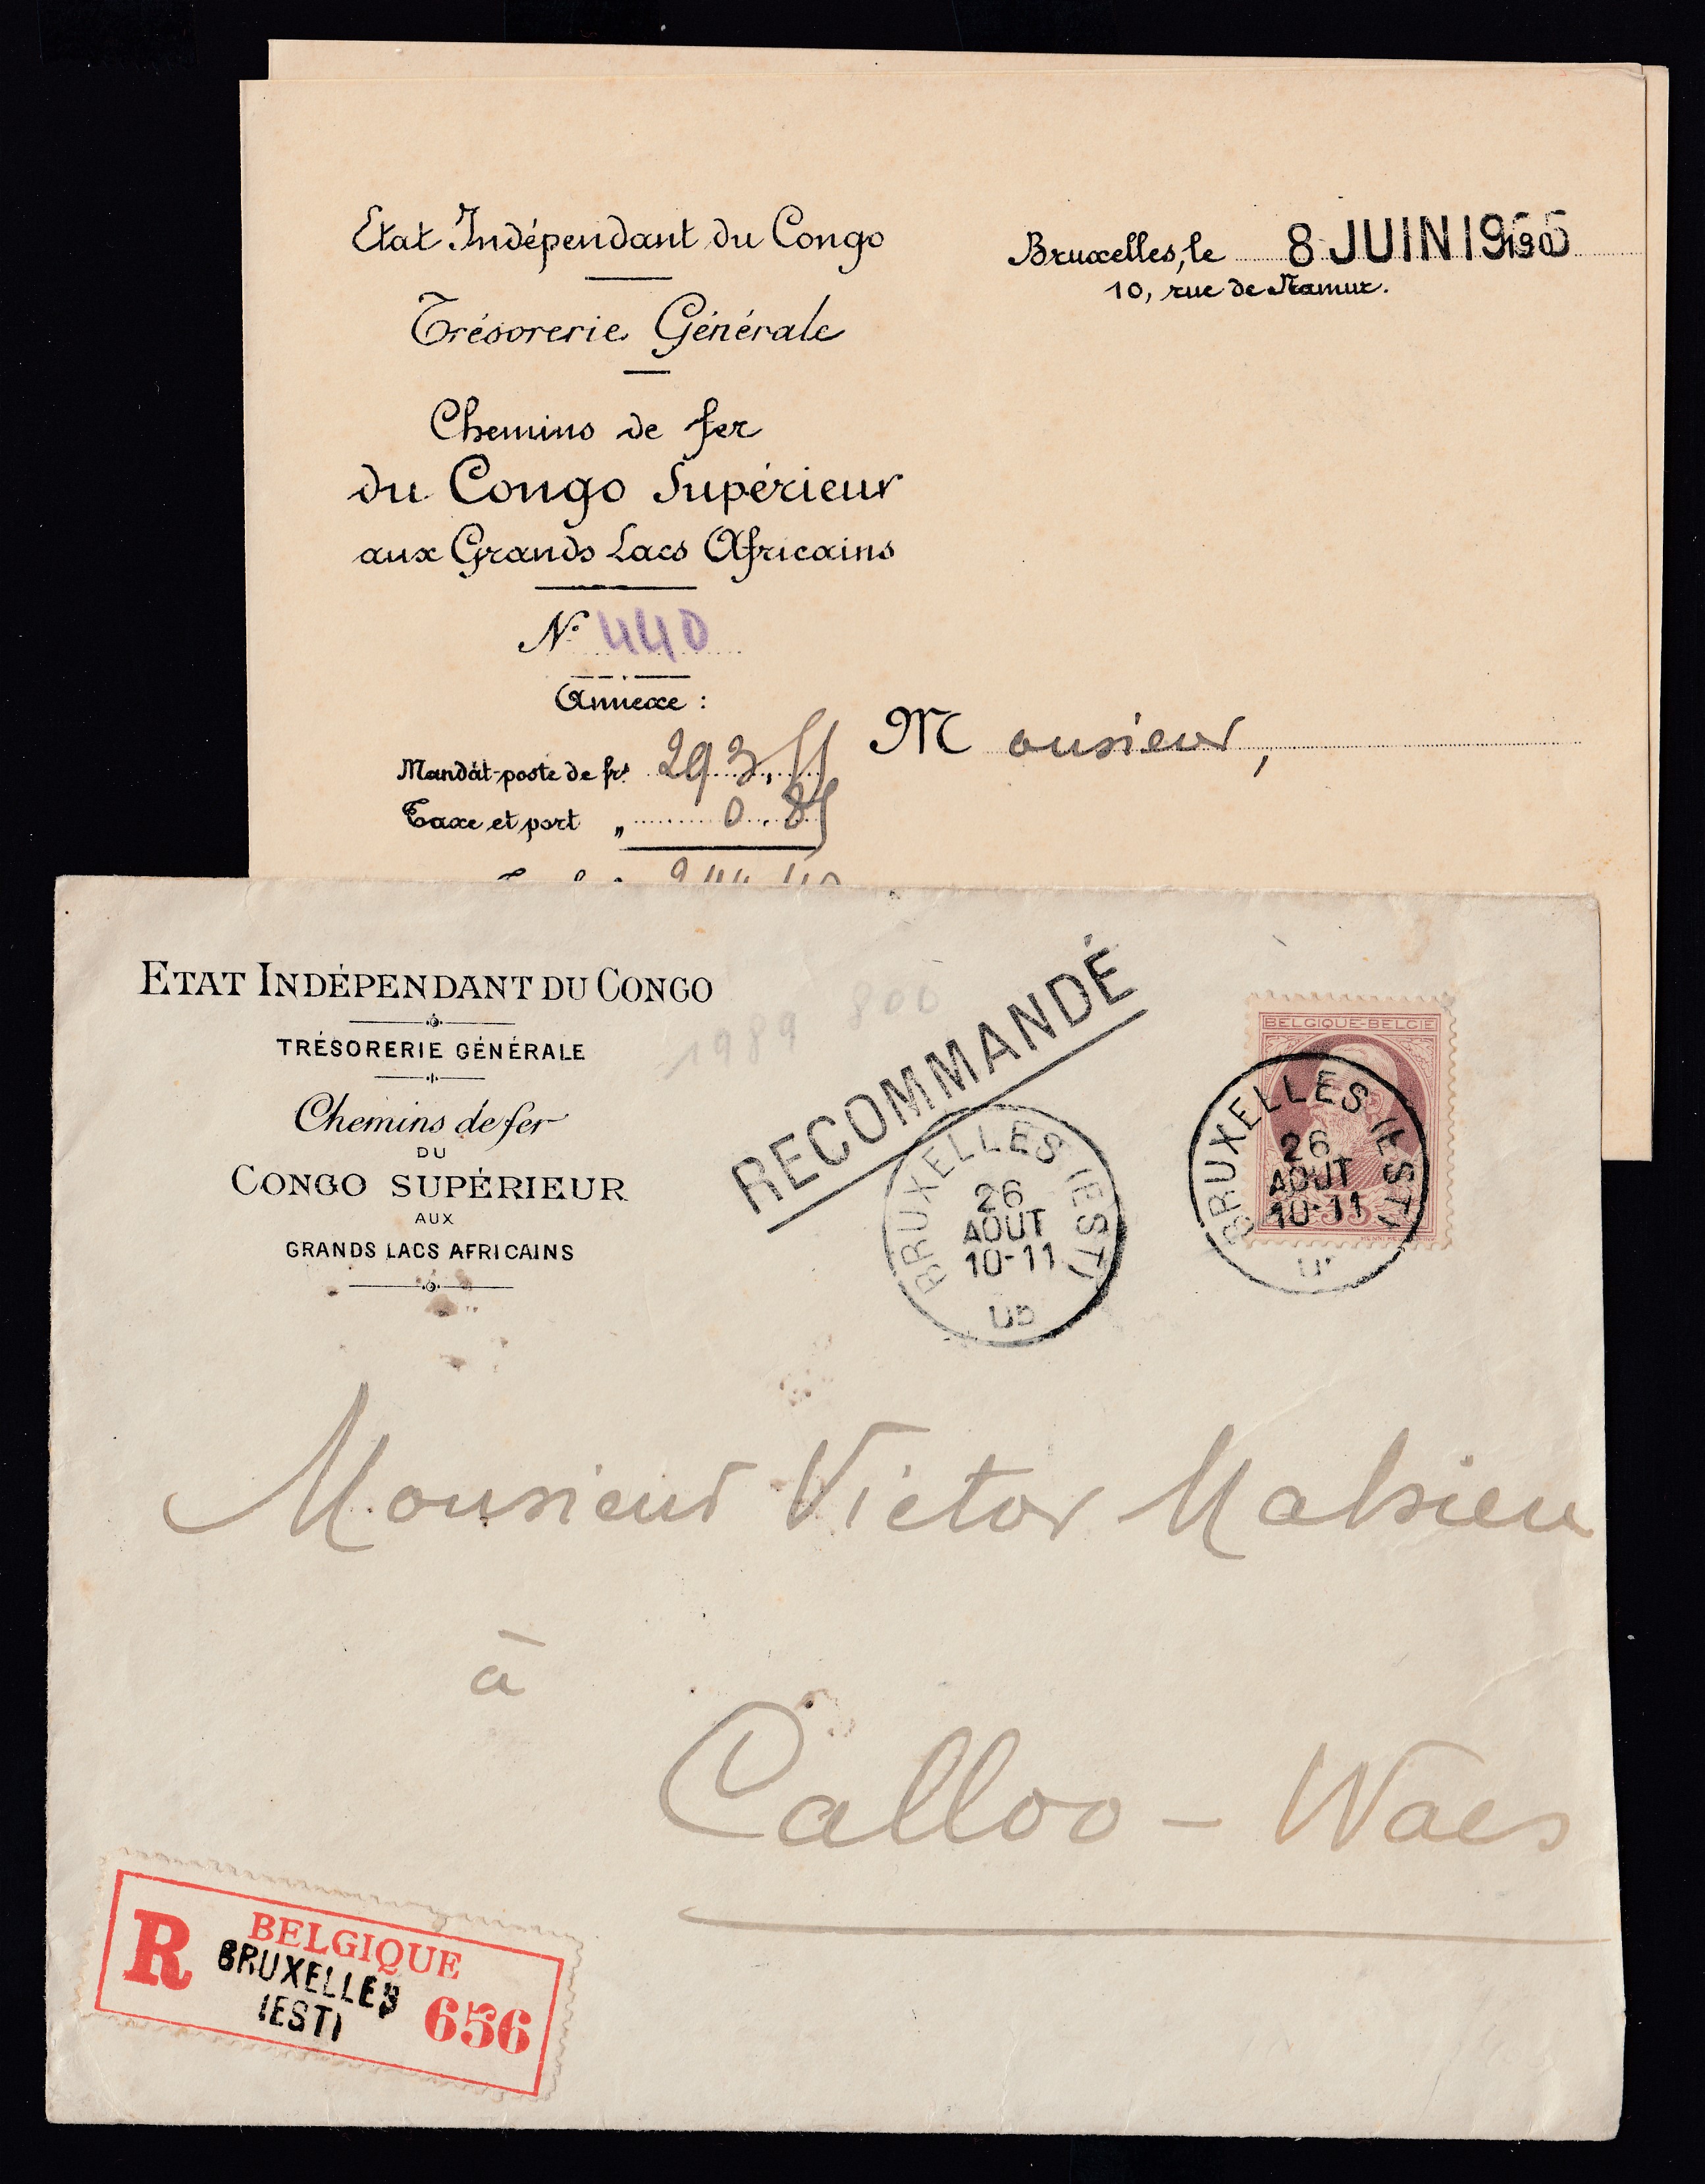 Etat Indépendant du Congo
Trésorerie Générale
Chemins de fer
du Congo Supérieur
aux Grands Lacs Africains
N° 440
Annexe :
Mandat-poste de frs 293,55
Taxe et port „ 0.85
Bruxelles, le 8 JUIN
10, rue de Namur.
Monsieur,
ETAT INDÉPENDANT DU CONGO
TRÉSORERIE GÉNÉRALE
Chemins de fer
DU
CONGO SUPÉRIEUR
AUX
GRANDS LACS AFRICAINS
1989 800
RECOMMANDÉ
BRUXELLES (EST)
26
AOUT
10-11
BELGIQUE-BELGIË
35
BRUXELLES (EST)
26
AOUT
10-11
Monsieur Victor
à
Calloo - Waes
R
BELGIQUE
BRUXELLES
(EST)
656